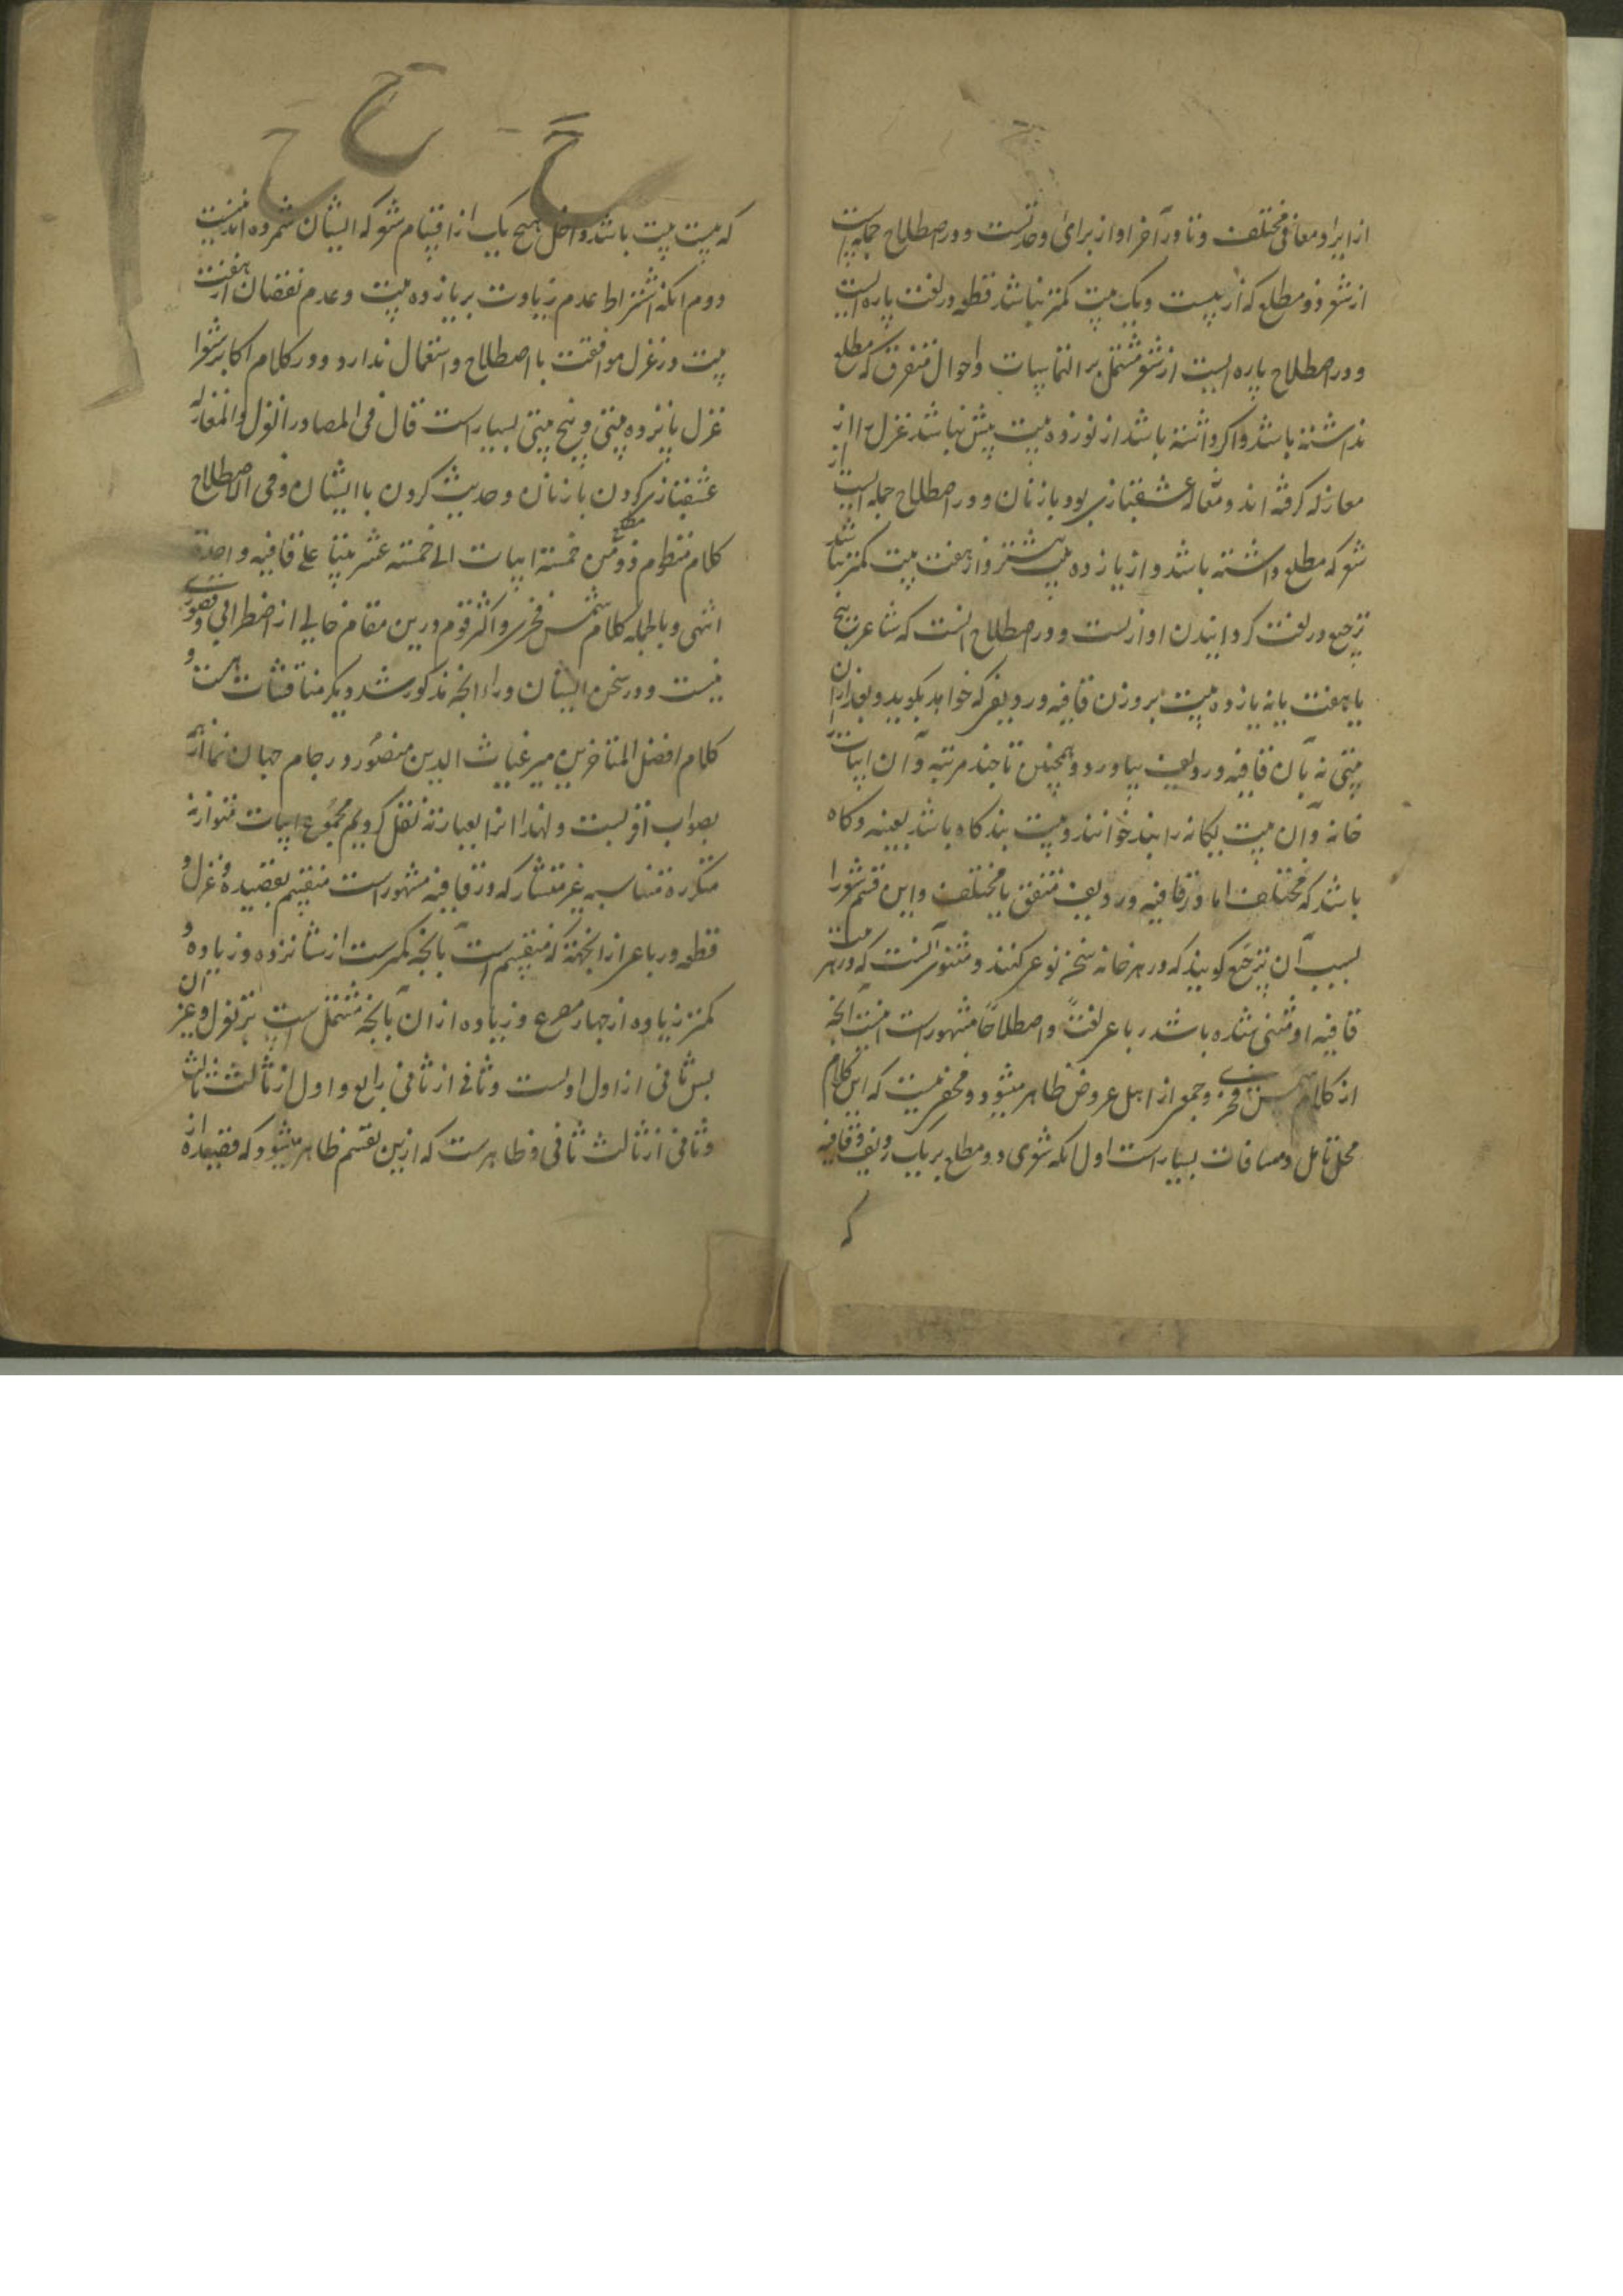 از ایراد معانی مختلف و تا در آخر او از برای وحدتست و در اصطلاح جمله ایست
از شعر ذو مطلع که از بیست و یک بیت کمتر نباشد قطعه در لغت پاره ایست
و در اصطلاح پاره ایست از شعر مشتمل بر التماسیات و احوال متفرق که مطلع
نداشته باشد و اگر داشته باشد از نوزده بیت بیش نباشد غزل را از
مغازله گرفته اند و مغازله عشقبازی بود با زنان و در اصطلاح جمله ایست از
شعر که مطلع داشته باشد و از یازده بیت بیشتر و از هفت بیت کمتر نباشد
ترجیع در لغت گردانیدن آواز است و در اصطلاح آنست که شاعر پنج
یا هفت یا نه یا یازده بیت بر وزن قافیه و ردیفی که خواهد بگوید و بعد از آن
بیتی نه بآن قافیه و ردیف بیاورد و همچنین تا چند مرتبه و آن ابیات را
خانه و آن بیت یگانه را بند خوانند و بیت بند گاه باشد بعینه و گاه
باشد که مختلف اما در قافیه و ردیف متفق یا مختلف و این قسم شعر را
بسبب آن ترجیع گویند که در هر خانه سخن نوعی کنند و مثنوی آنست که در هر بیت
قافیه او مثنی شده باشد رباعی لغتاً و اصطلاحاً مشهور است اینست آنچه
از کلام شمس فخری و جمعی از اهل عروض ظاهر میشود و مخفی نیست که این کلام
محل تأمل و مسافات بسیار است اول آنکه شعری ذو مطلع بر یک ردیف و قافیه
که
که بیست بیت باشد داخل هیچ یک از اقسام شعر که ایشان شمرده اند نیست
دوم آنکه اشتراط عدم زیادت بر یازده بیت و عدم نقصان از هفت
بیت در غزل موافقت با اصطلاح و استعمال ندارد و در کلام اکابر شعرا
غزل پانزده بیتی و پنج بیتی بسیار است قال فی المصادر الغزل و المغازله
عشقبازی کردن با زنان و حدیث کردن با ایشان و فی الاصطلاح
کلام منظوم ذو مطلع من خمسة ابیات الی خمسة عشر بیتا علی قافیه واحدة
انتهی و بالجمله کلام شمس فخری و اکثر قوم درین مقام خالی از اضطرابی و قصوری
نیست و در سخن ایشان وراء آنچه مذکور شد دیگر مناقشات هست و
کلام افضل المتأخرین میر غیاث الدین منصور در جام جهان نما از همه
بصواب اقربست و لهذا آنرا بعبارته نقل کردیم مجموع ابیات متوازنه
متکرره متناسبه غیر متشارکه در قافیه مشهور است منقسم بقصیده و غزل و
قطعه و رباعی از آنجهة که منقسم است بآنچه کمترست از شانزده و زیاده و
کمتر زیاده از چهار مصرع و زیاده از آن بآنچه مشتمل است بر تغزل و غیر آن
پس ثانی از اول اولست و ثانی از ثانی رابع و اول از ثالث ثالث
و ثانی از ثالث ثانی و ظاهرست که ازین تقسیم ظاهر میشود که قصیده از